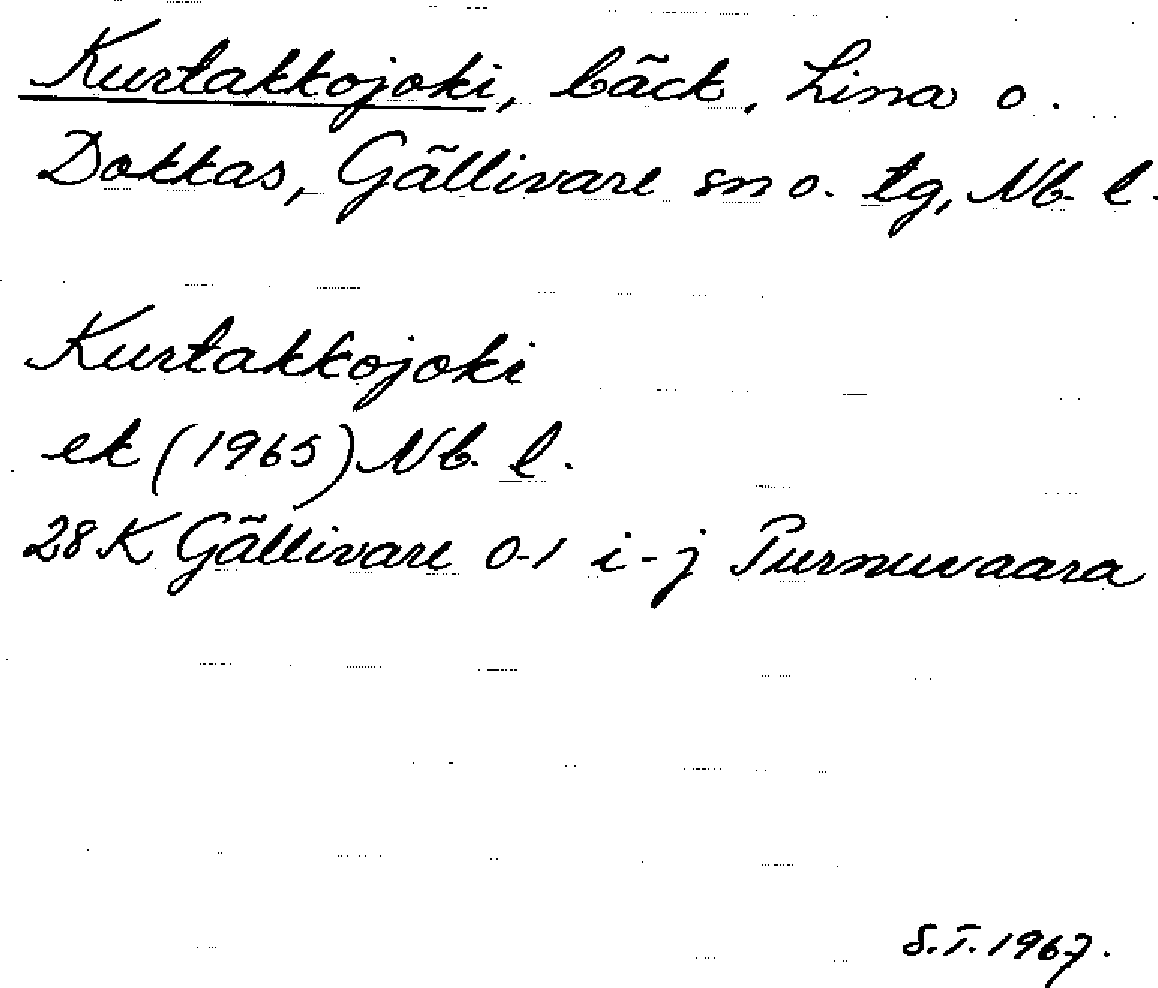 Kurtakkojoki, bäck, Lina o.
Dokkas, Gällivare sn o. tg, Nb. l.
Kurtakkojoki
ek (1965) Nb. l.
28K Gällivare 0-1 i-j Purnuvaara
S.T. 1967.